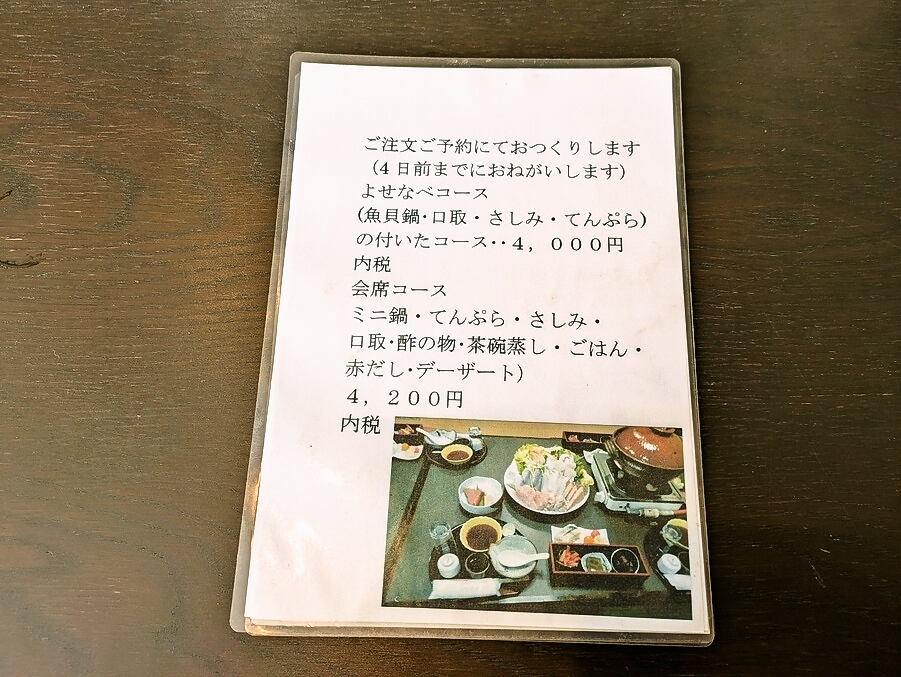 ご注文ご予約にておつくりします
（4日前までにおねがいします）
よせなべコース
（魚貝鍋・口取・さしみ・てんぷら）
の付いたコース‥４，０００円
内税
会席コース
ミニ鍋・てんぷら・さしみ・
口取・酢の物・茶碗蒸し・ごはん・
赤だし・デーザート）
４，２００円
内税